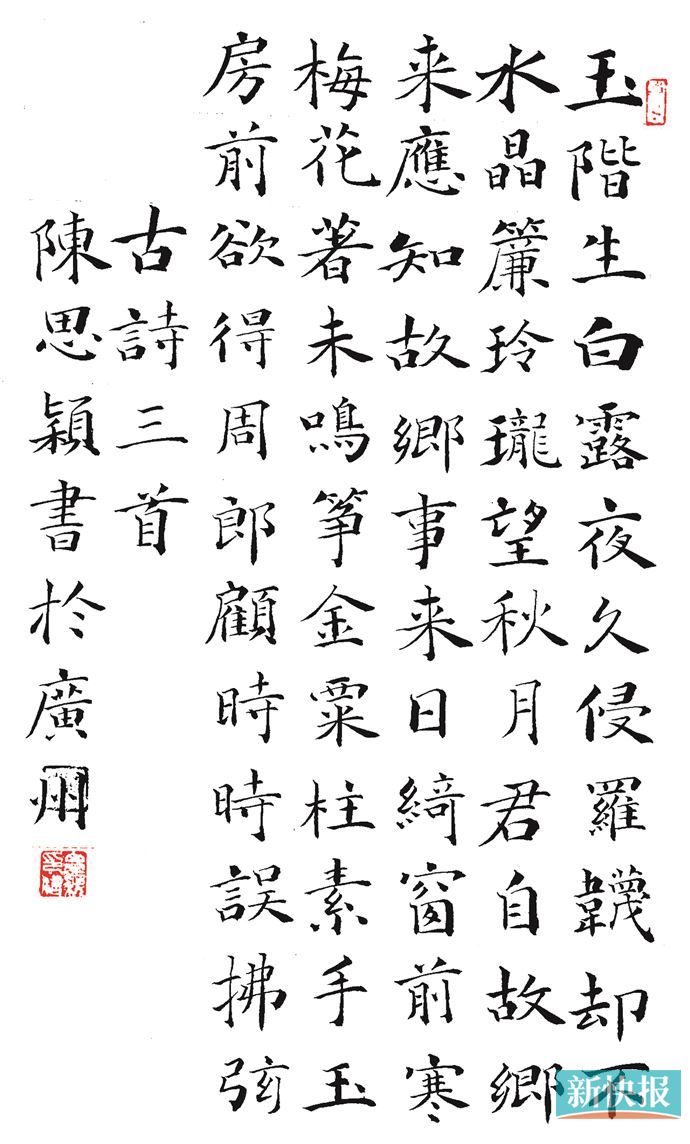 玉階生白露夜久侵羅韈却下
水晶簾玲瓏望秋月君自故鄉
来應知故鄉事来日綺窗前寒
梅花著未鳴筝金粟柱素手玉
房前欲得周郎顧時時誤拂弦
古詩三首
陳思穎書於廣州
新快报